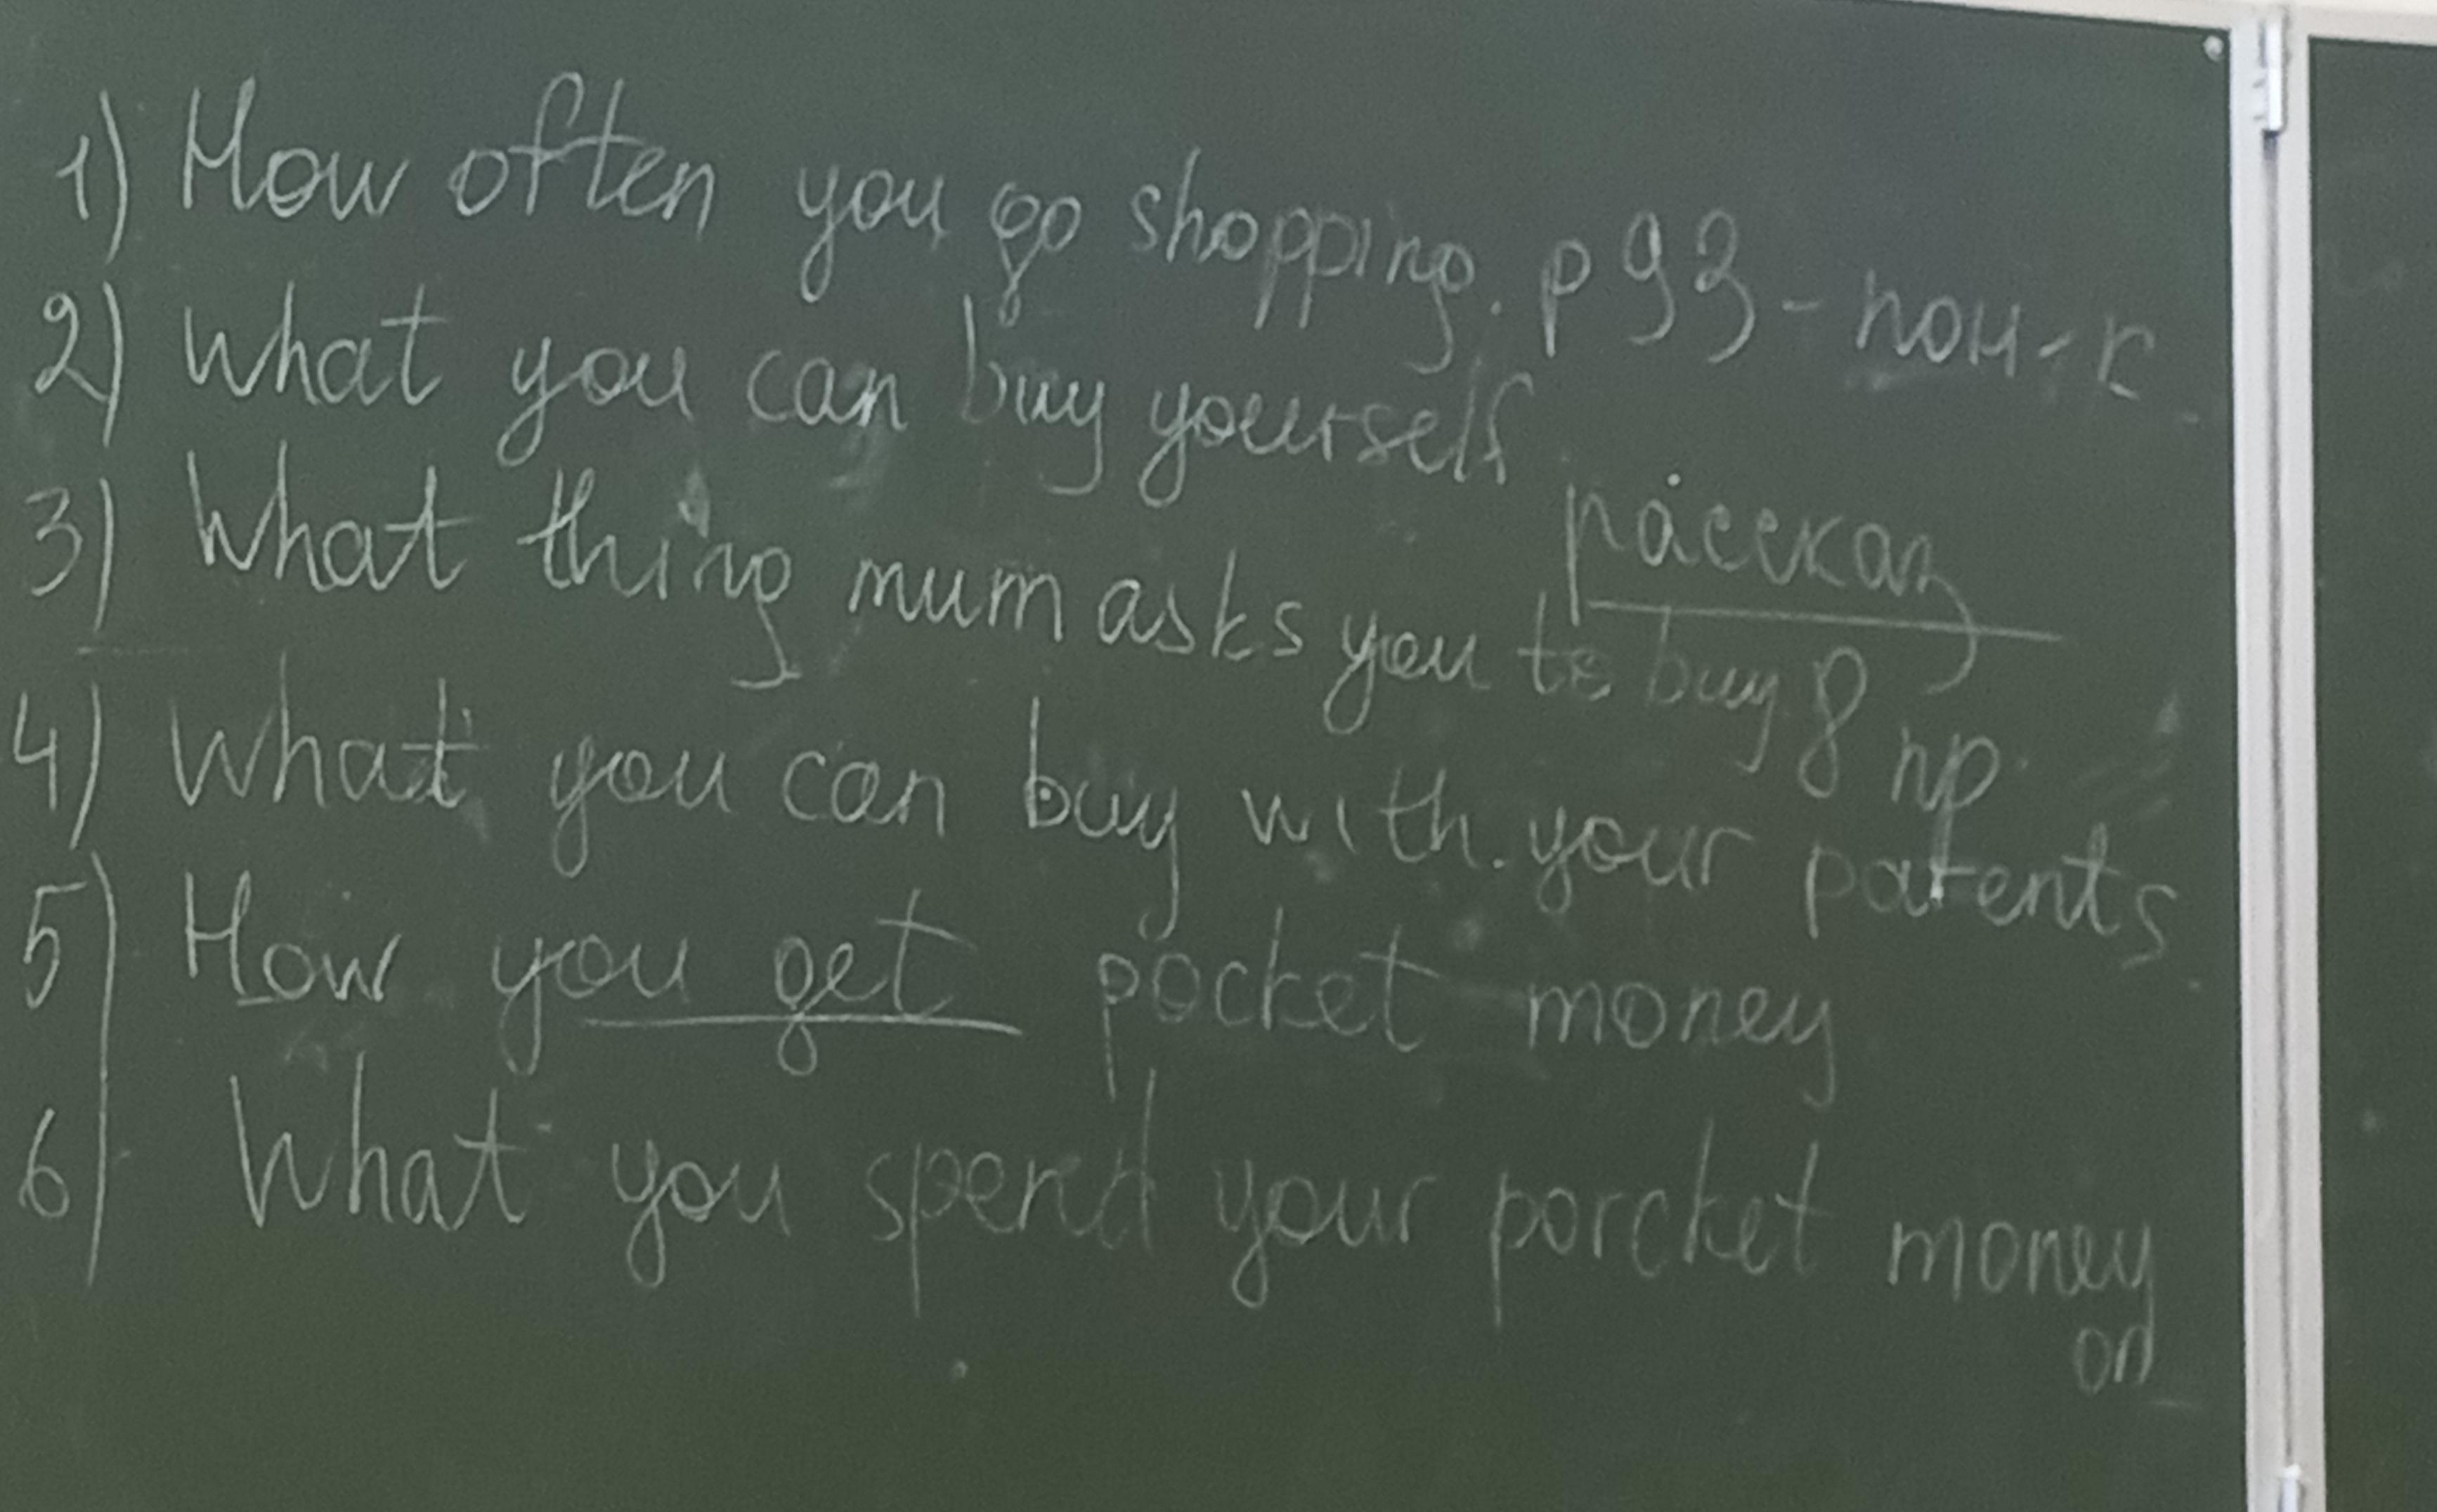 1) How often you go shopping. p 93 - пон-к
2) What you can buy yourself
3) What thing mum asks you to buy
рассказ
8 пр
4) What you can buy with your parents
5) How you get pocket money
6) What you spend your porcket money
on